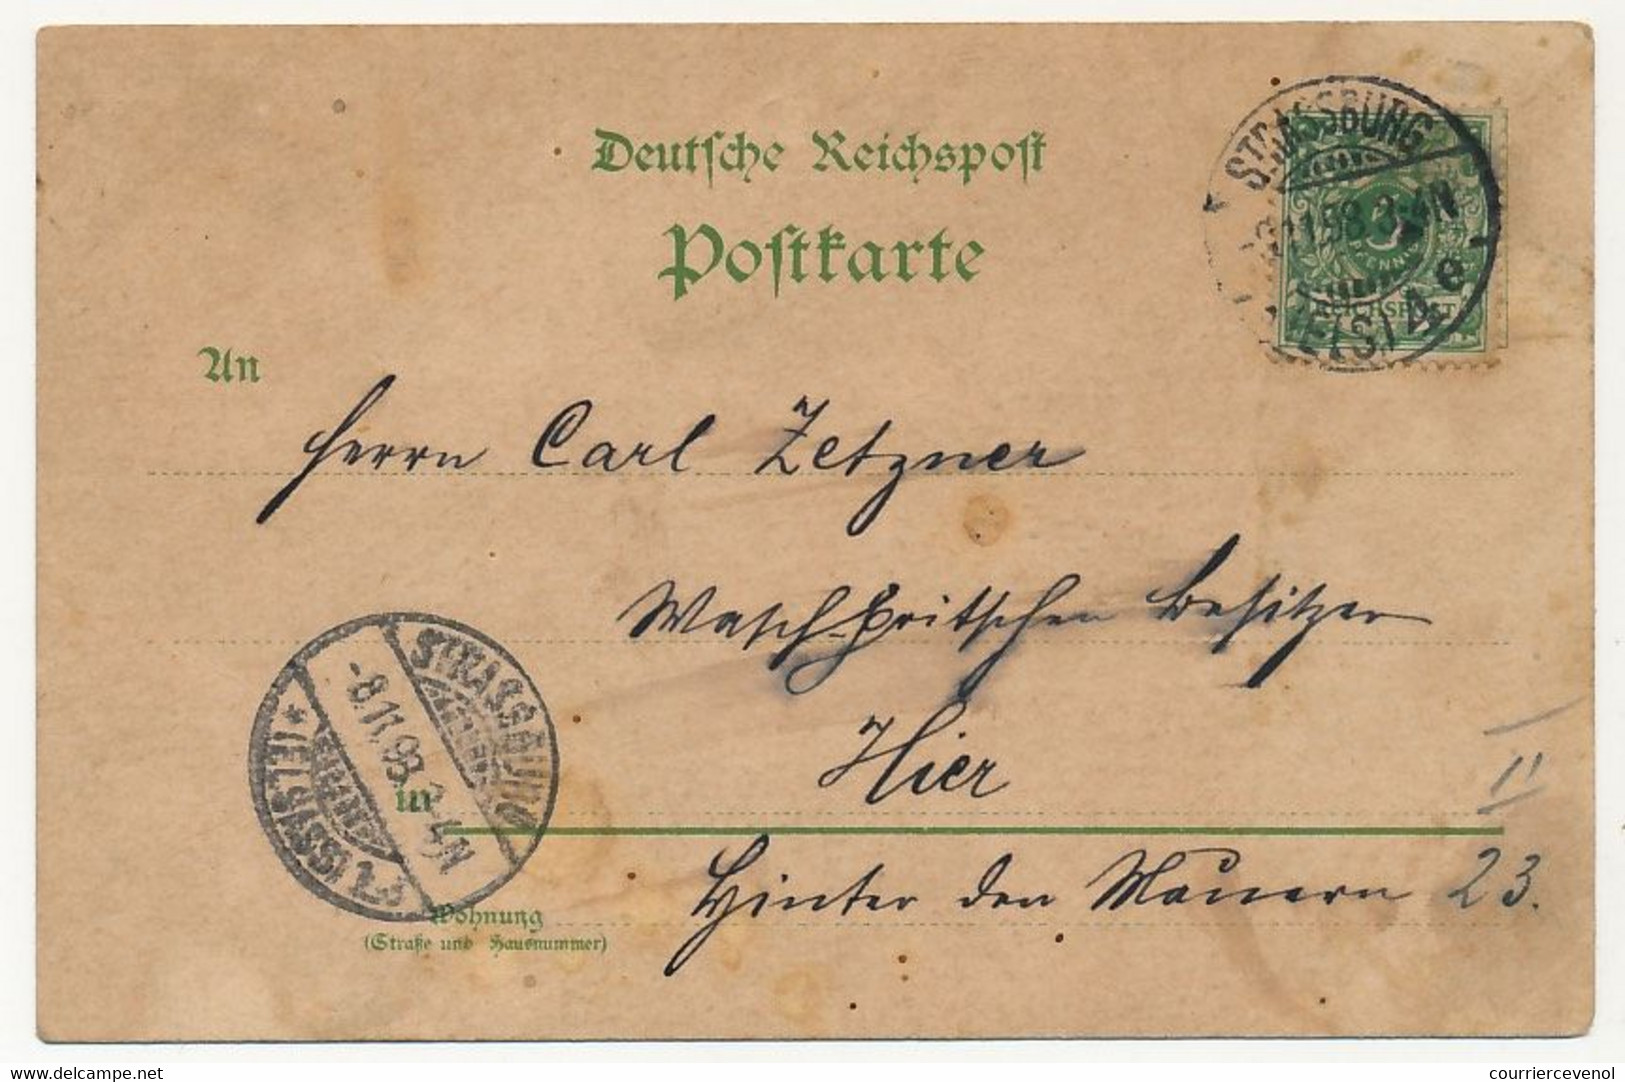 Deutsche Reichspost
Postkarte
STRASSBURG
11.98. 3-4N
(ELS) 4 e
REICHSPOST
An
Herrn Carl Zetzner
Wasch-Pritschen Besitzer
STRASSBURG
-8.11.98. 3-4N
* (ELS)
in Hier
II
Hinter den Mauern 23.
Wohnung
(Straße und Hausnummer)
delcampe.net
courriercevenol